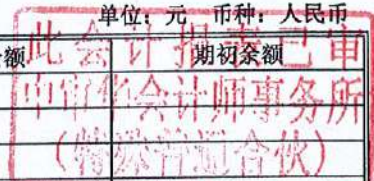 单位：元 币种：人民币
额 期初余额
此会计报表已审
中审华会计师事务所
（特殊普通合伙）